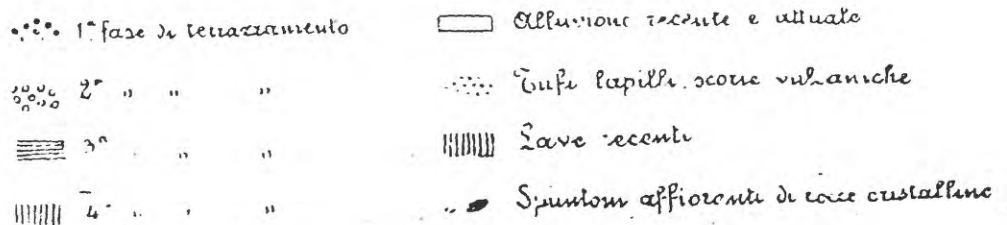 1ª fase di terrazzamento
2ª " " "
3ª " " "
4ª " " "
Alluvione recente e attuale
Tufi lapilli scorie vulcaniche
Lave recenti
Spuntoni affioranti di rocce cristalline